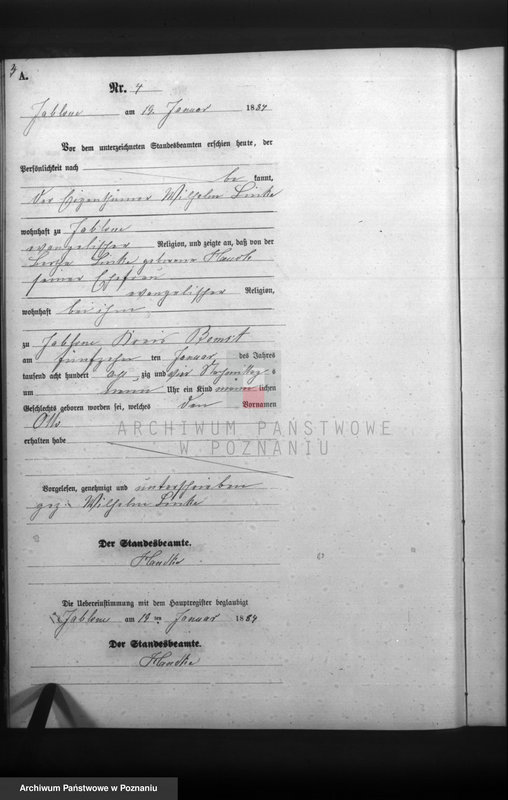 A.
Nr. 4
Jablone am 19. Januar 1884
Vor dem unterzeichneten Standesbeamten erschien heute, der
Persönlichkeit nach
be kannt,
der Eigenthümer Wilhelm Linke
wohnhaft zu Jablone
evangelischer Religion, und zeigte an, daß von der
Linke geborene
seiner Ehefrau
evangelischer Religion,
wohnhaft bei ihm
zu Jablone Kreis Bomst
am fünfzehn ten Januar des Jahres
tausend acht hundert acht zig und vier Nachmittag s
um neun Uhr ein Kind männ lichen
Geschlechts geboren worden sei, welches den Vornamen
Otto
erhalten habe
ARCHIWUM PAŃSTWOWE
W POZNANIU
Vorgelesen, genehmigt und unterschrieben
gez. Wilhelm Linke
Der Standesbeamte.
Die Uebereinstimmung mit dem Hauptregister beglaubigt
Jablone am 19 ten Januar 1884
Der Standesbeamte.
Archiwum Państwowe w Poznaniu